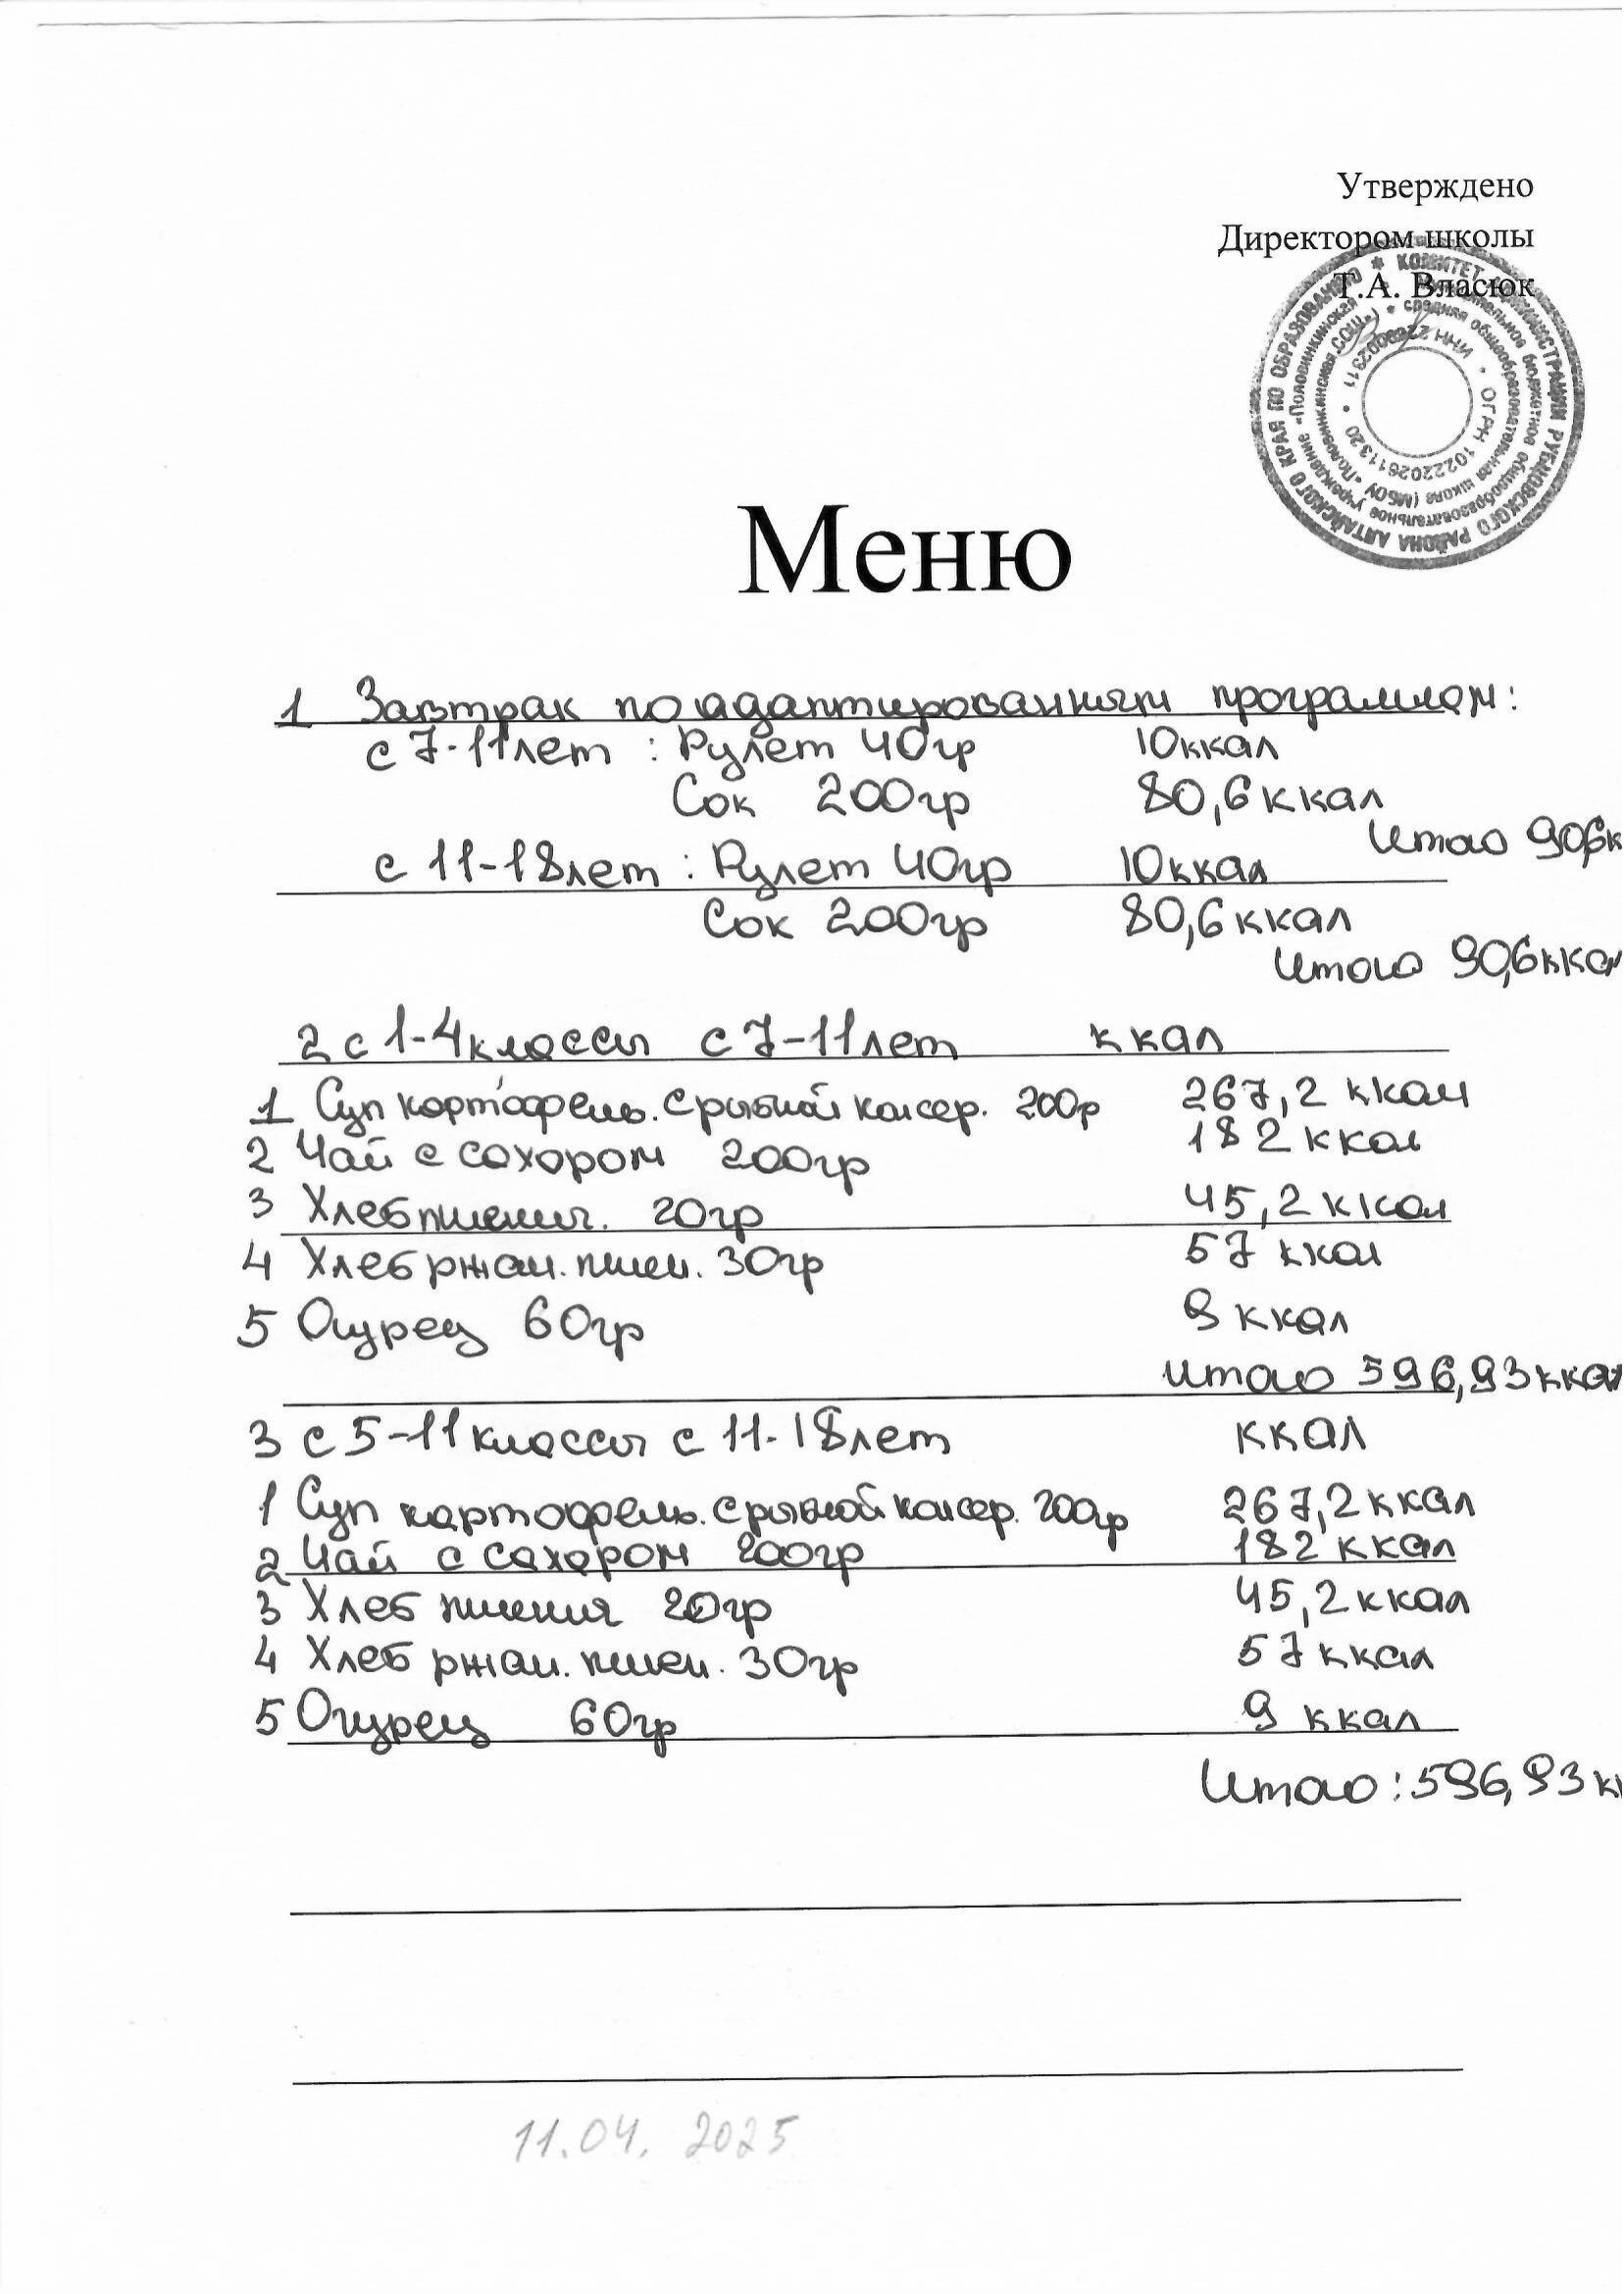 Утверждено
Директором школы
Т.А. Власюк
КОМИТЕТ АДМИНИСТРАЦИИ РУБЦОВСКОГО РАЙОНА АЛТАЙСКОГО КРАЯ ПО ОБРАЗОВАНИЮ
муниципальное бюджетное общеобразовательное учреждение «Половинкинская
средняя общеобразовательная школа (МБОУ «Половинкинская СОШ»)
ОГРН 1022202611320
Меню
1 Завтрак по адаптированням программам:
с 7-11лет : Рулет 40гр 10ккал
Сок 200гр 80,6ккал
Итаго 90,6к
с 11-18лет : Рулет 40гр 10ккал
Сок 200гр 80,6ккал
Итого 90,6ккал
2 с 1-4классы с 7-11лет ккал
1 Суп картофель. с рыбной консер. 200р 267,2 ккал
2 Чай с сахором 200гр 182 ккал
3 Хлеб пшенич. 20гр 45,2 ккал
4 Хлеб ржан. пшен. 30гр 57 ккал
5 Огурец 60гр 9 ккал
итаго 596,93ккал
3 с 5-11классы с 11-18лет ккал
1 Суп картофель. с рыбной консер. 200гр 267,2ккал
2 Чай с сахором 200гр 182 ккал
3 Хлеб 20гр 45,2ккал
4 Хлеб ржан. пшен. 30гр 57ккал
5 Огурец 60гр 9 ккал
Итаго : 596,93 кк
11.04. 2025